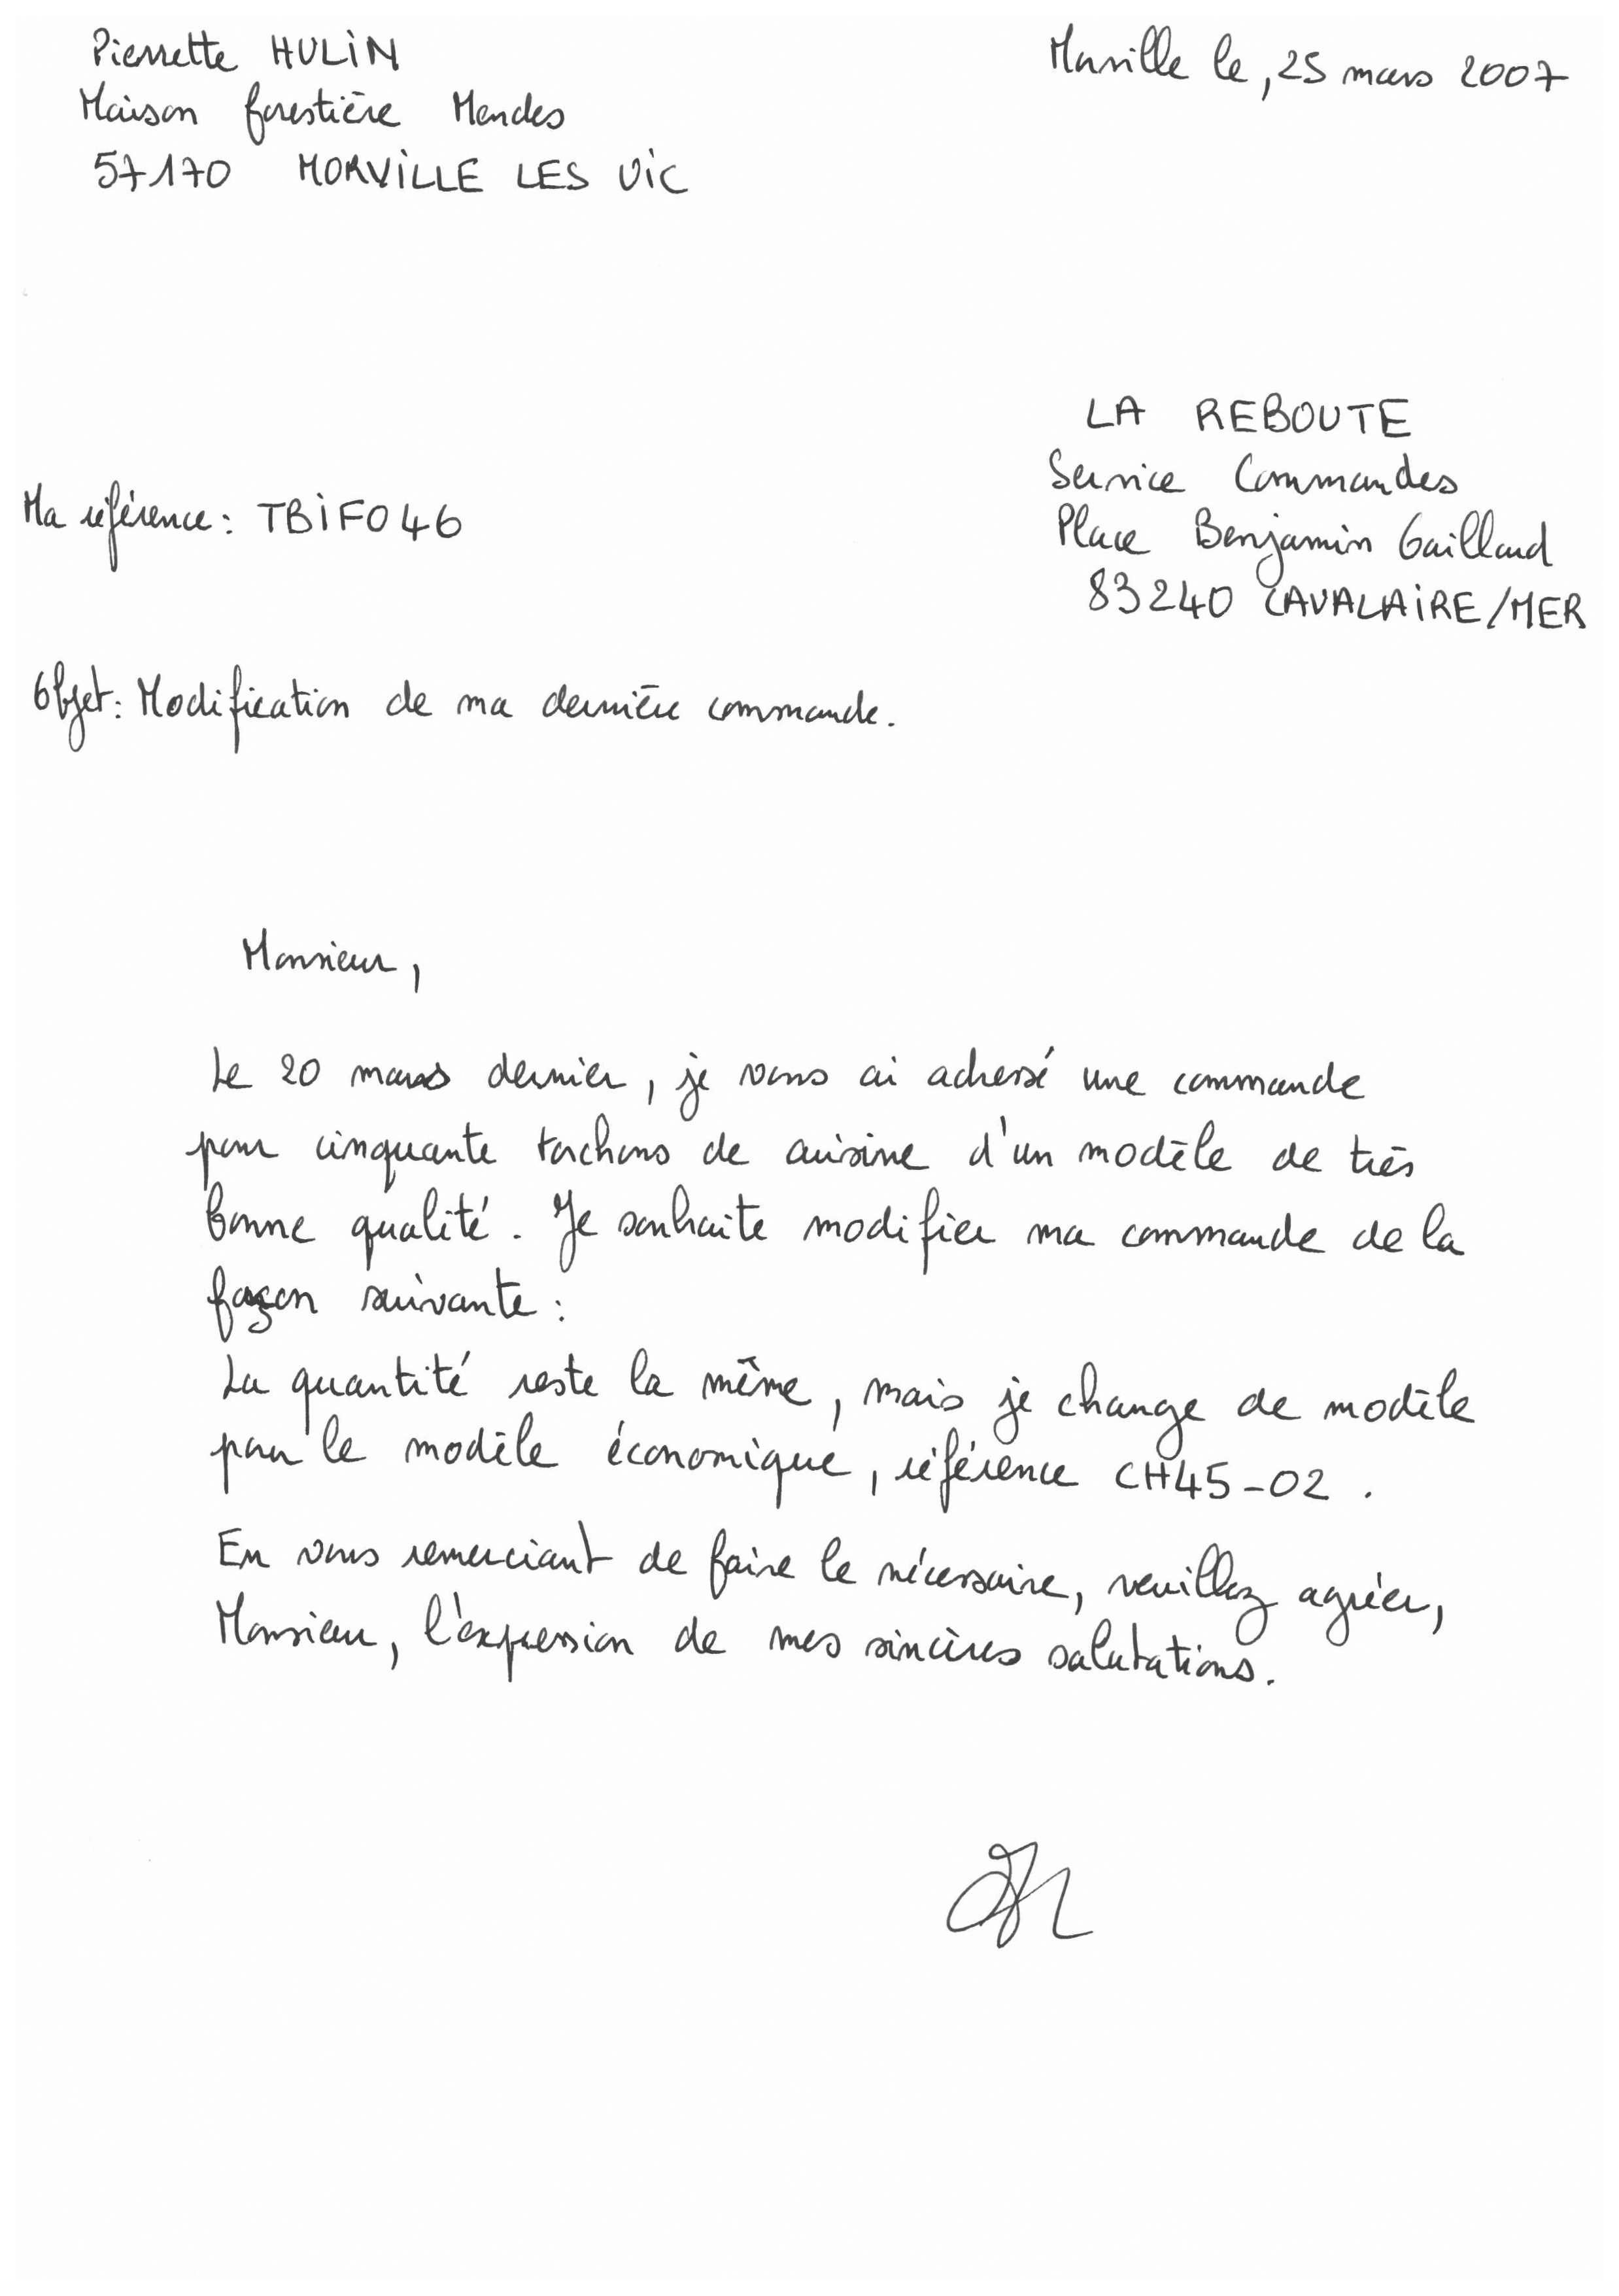 Pierrette HULIN
Maison forestière Mendes
57170 MORVILLE LES VIC
Morville le, 25 mars 2007
LA REBOUTE
Service Commandes
Place Benjamin Gaillard
83240 CAVALAIRE/MER
Ma référence : TBIFO46
Objet : Modification de ma dernière commande.
Monsieur,
Le 20 mars dernier, je vous ai adressé une commande
pour cinquante torchons de cuisine d'un modèle de très
bonne qualité. Je souhaite modifier ma commande de la
façon suivante :
La quantité reste la même, mais je change de modèle
pour le modèle économique, référence CH45-02.
En vous remerciant de faire le nécessaire, veuillez agréer,
Monsieur, l'expression de mes sincères salutations.